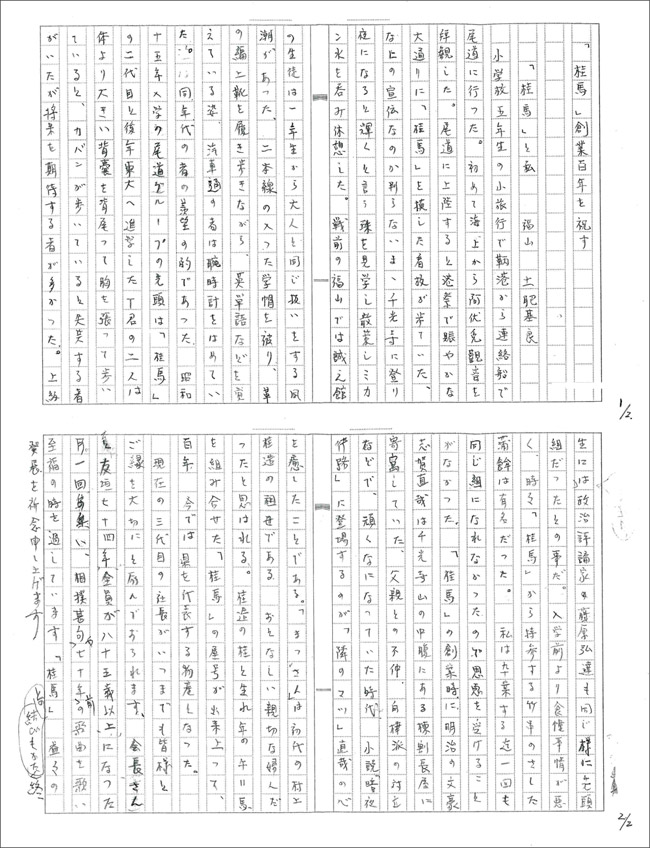 「桂馬」創業百年を祝す
「桂馬」と私　　福山　土肥基良
小学校五年生の小旅行で鞆港から連絡船で
尾道に行った。初めて海上から阿伏兎観音を
拝観した。尾道に上陸すると港祭で賑やかな
大通りに「桂馬」を模した看板が来ていた。
なにの宣伝なのか判らないまゝ千光寺に登り
夜になると輝くと言う珠を見学し散策しミカ
ン水を呑み休憩した。戦前の福山では誠之館
の生徒は一年生から大人と同じ扱いをする風
潮があった。二本線の入った学帽を被り、革
の編上靴を履き歩きながら、英単語などを覚
えている姿、汽車通の者は腕時計をはめてい
た。同年代の者の羨望の的であった。昭和
十五年入学の尾道グループの先頭は「桂馬」
の二代目と後年東大へ進学したT君の二人は
体より大きい背嚢を背尾って胸を張って歩い
ていると、カバンが歩いていると失笑する者
がいたが将来を期待する者が多かった。上級
1/2.
生には政治評論家の藤原弘達も同じ様に先頭
組だったとの事だ。入学前より食糧事情が悪
く、時々「桂馬」から持参する竹串のさした
蒲鉾は有名だった。私は卒業する迄一回も
同じ組になれなかったので恩恵を受けること
がなかった。「桂馬」の創業時に明治の文豪
志賀直哉は千光寺山の中腹にある棟割長屋に
寄寓していた。父親との不仲、白樺派の対立
などで、頑くなになっていた時代　小説「暗夜
行路」に登場するのが「隣のマツ」直哉の心
を癒したことである。「まつさん」は初代の村上
桂造の祖母である。おとなしい親切な婦人だ
ったと思はれる。桂造の桂と生れ年の午＝馬
を組み合せた「桂馬」の屋号が出来上って、
百年、今では県を代表する物産となった。
現在の三代目の社長がいつまでも皆様と
ご縁を大切にと励んでおられます。会長さん
友垣七十四年全員が八十五歳以上になった
月一回集い、相撲甚句や七十年前の歌曲を歌い
至福の時を過しています「桂馬」益々の
発展を祈念申し上げます
2/2